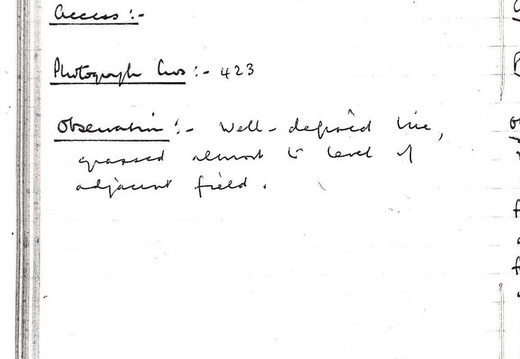 Access :-
Photograph Nos :- 423
Observation :- Well-defined line,
grassed almost to level of
adjacent field.